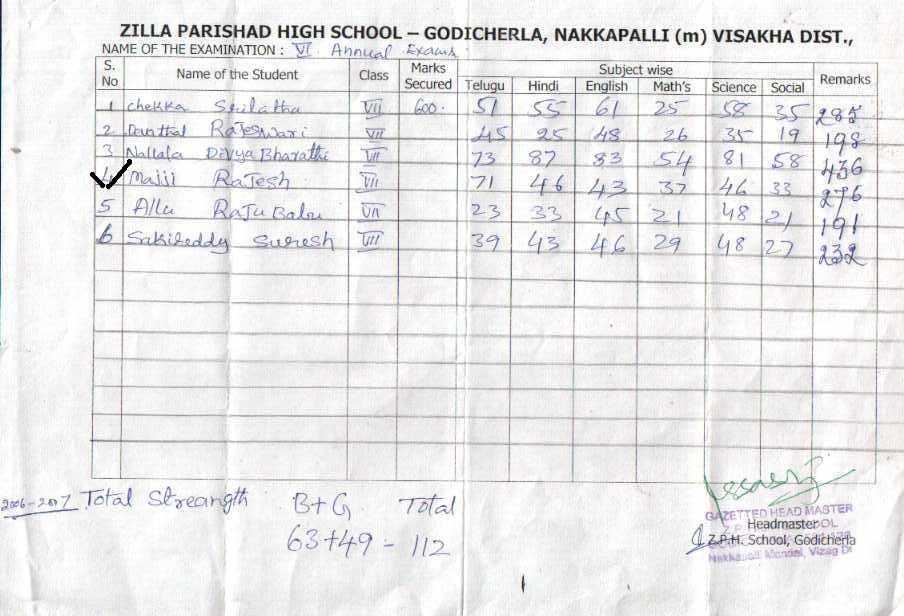 ZILLA PARISHAD HIGH SCHOOL – GODICHERLA, NAKKAPALLI (m) VISAKHA DIST.,
NAME OF THE EXAMINATION : VI Annual Exams
S. No Name of the Student Class Marks Secured Subject wise Remarks
Telugu Hindi English Math's Science Social
1 Chekka Srilatha VII 600. 51 55 61 25 58 35 285
2 Rajeswari VII 45 25 48 26 35 19 198
3 Nallala Divya Bharathi VII 73 87 83 54 81 58 436
4 Majji Rajesh VII 71 46 43 37 46 33 276
5 Allu Raju Babu VII 23 33 45 21 48 21 191
6 Sakireddy Suresh VII 39 43 46 29 48 27 232
2006-2007 Total Streangth B+G Total
63+49 - 112
GAZETTED HEAD MASTER
Headmaster
Z.P.H. School, Godicherla
Nakkapalli Mandal, Vizag Dt